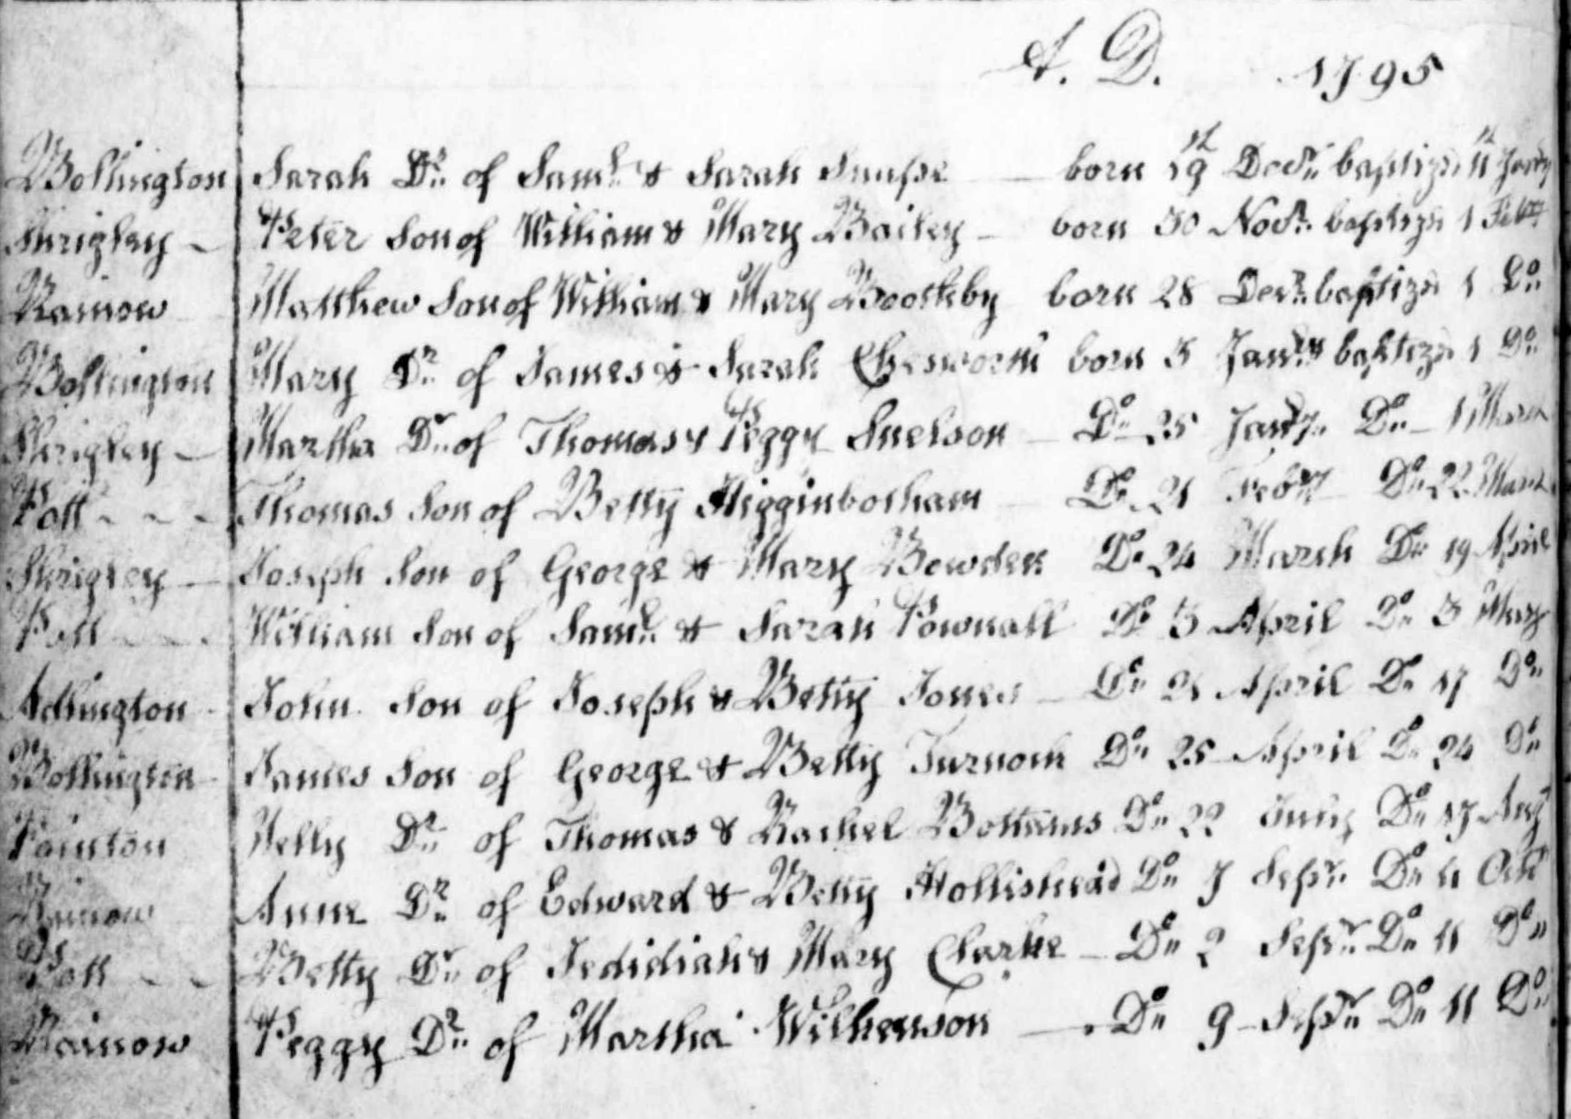 A. D. 1795
Bollington Sarah Dr. of Saml. & Sarah born 19 Decr. baptizd 11 Janry
Shrigley Peter Son of William & Mary Bailey born 30 Novr. baptizd 1 Febry
Rainow Matthew Son of William & Mary Boothby born 28 Decr. baptizd 1 Do.
Bollington Mary Dr. of James & Sarah Chesworth born 5 Janry baptizd 1 Do.
Shrigley Martha Dr. of Thomas & Peggy Snelson Do. 25 Janry Do. 1 March
Pott Thomas Son of Betty Higginbotham Do. 21 Febry Do. 22 March
Shrigley Joseph Son of George & Mary Bowden Do. 24 March Do. 19 April
Pott William Son of Saml. & Sarah Pownall Do. 3 April Do. 3 May
Adlington John Son of Joseph & Betty Jones Do. 21 April Do. 17 Do.
Bollington James Son of George & Betty Turnock Do. 25 April Do. 24 Do.
Pointon Nelly Dr. of Thomas & Rachel Bottams Do. 22 July Do. 17 Augt
Rainow Anne Dr. of Edward & Betty Hollishead Do. 7 Sepr. Do. 11 Octr
Pott Betty Dr. of Jedidiah & Mary Clarke Do. 2 Sepr. Do. 11 Do.
Rainow Peggy Dr. of Martha Wilkenson Do. 9 Sepr. Do. 11 Do.